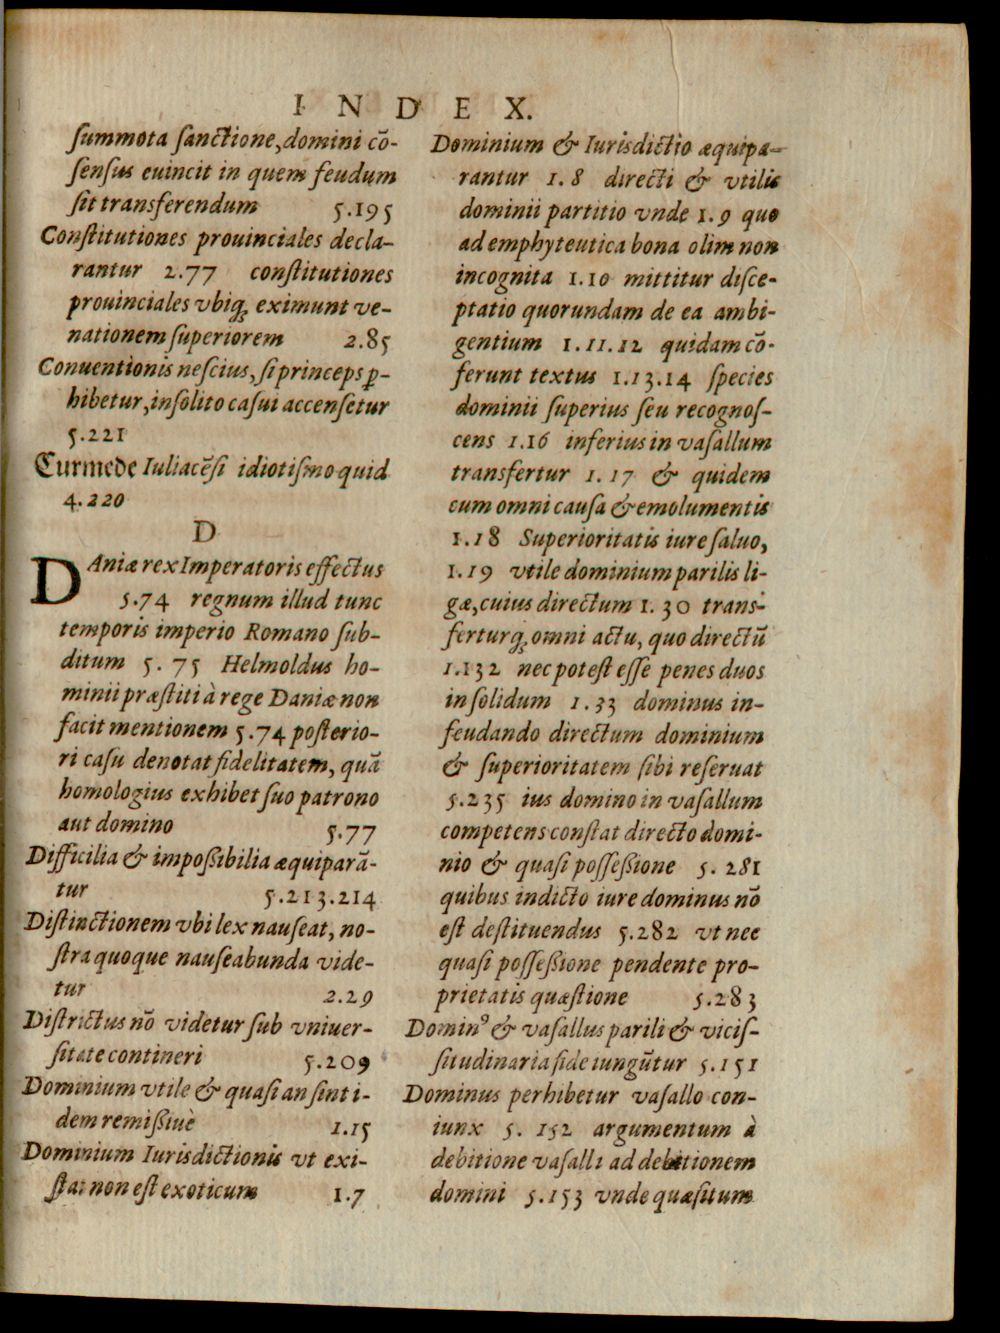 INDEX.
ſummota ſanctione, domini cõ-
ſenſus euincit in quem feudum
ſit transferendum 5.195
Conſtitutiones prouinciales decla-
rantur 2.77 conſtitutiones
prouinciales vbiq; eximunt ve-
nationem ſuperiorem 2.85
Conuentionis neſcius, ſi princeps ꝓ-
hibetur, inſolito caſui accenſetur
5.221
Curmede Iuliacẽſi idiotiſmo quid
4.220
D
DAniæ rex Imperatoris effectus
5.74 regnum illud tunc
temporis imperio Romano ſub-
ditum 5. 75 Helmoldus ho-
minii præſtiti à rege Daniæ non
facit mentionem 5.74 poſterio-
ri caſu denotat fidelitatem, quã
homologius exhibet ſuo patrono
aut domino 5.77
Difficilia & impoßibilia æquiparã-
tur 5.213.214
Diſtinctionem vbi lex nauſeat, no-
ſtra quoque nauſeabunda vide-
tur 2.29
Diſtrictus nõ videtur ſub vniuer-
ſitate contineri 5.209
Dominium vtile & quaſi an ſint i-
dem remißiuè 1.15
Dominium Iurisdictionis vt exi-
ſtat non eſt exoticum 1.7
Dominium & Iurisdictio æquipa-
rantur 1.8 directi & vtilis
dominii partitio vnde 1.9 quo
ad emphyteutica bona olim non
incognita 1.10 mittitur diſce-
ptatio quorundam de ea ambi-
gentium 1.11.12 quidam cõ-
ferunt textus 1.13.14 ſpecies
dominii ſuperius ſeu recognoſ-
cens 1.16 inferius in vaſallum
transfertur 1.17 & quidem
cum omni cauſa & emolumentis
1.18 Superioritatis iure ſaluo,
1.19 vtile dominium parilis li-
gæ, cuius directum 1. 30 trans-
ferturq; omni actu, quo directũ
1.132 nec poteſt eſſe penes duos
in ſolidum 1.33 dominus in-
feudando directum dominium
& ſuperioritatem ſibi reſeruat
5.235 ius domino in vaſallum
competens conſtat directo domi-
nio & quaſi poſſeßione 5. 281
quibus indicto iure dominus nõ
eſt deſtituendus 5.282 vt nec
quaſi poſſeßione pendente pro-
prietatis quæſtione 5.283
Dominꝰ & vaſallus parili & viciſ-
ſitudinaria fide iungũtur 5.151
Dominus perhibetur vaſallo con-
iunx 5. 152 argumentum à
debitione vaſalli ad debitionem
domini 5.153 vnde quæſitum